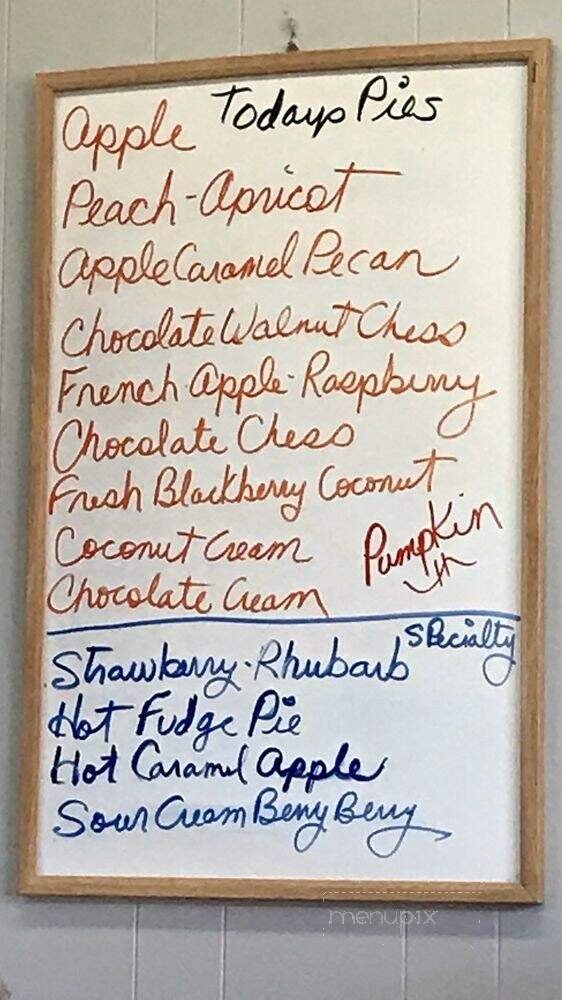 Todays Pies
Apple
Peach-Apricot
Apple Caramel Pecan
Chocolate Walnut Chess
French Apple-Raspberry
Chocolate Chess
Fresh Blackberry Coconut
Coconut Cream
Pumpkin
Chocolate Cream
Specialty
Strawberry-Rhubarb
Hot Fudge Pie
Hot Caramel Apple
Sour Cream Berry Berry
menupix